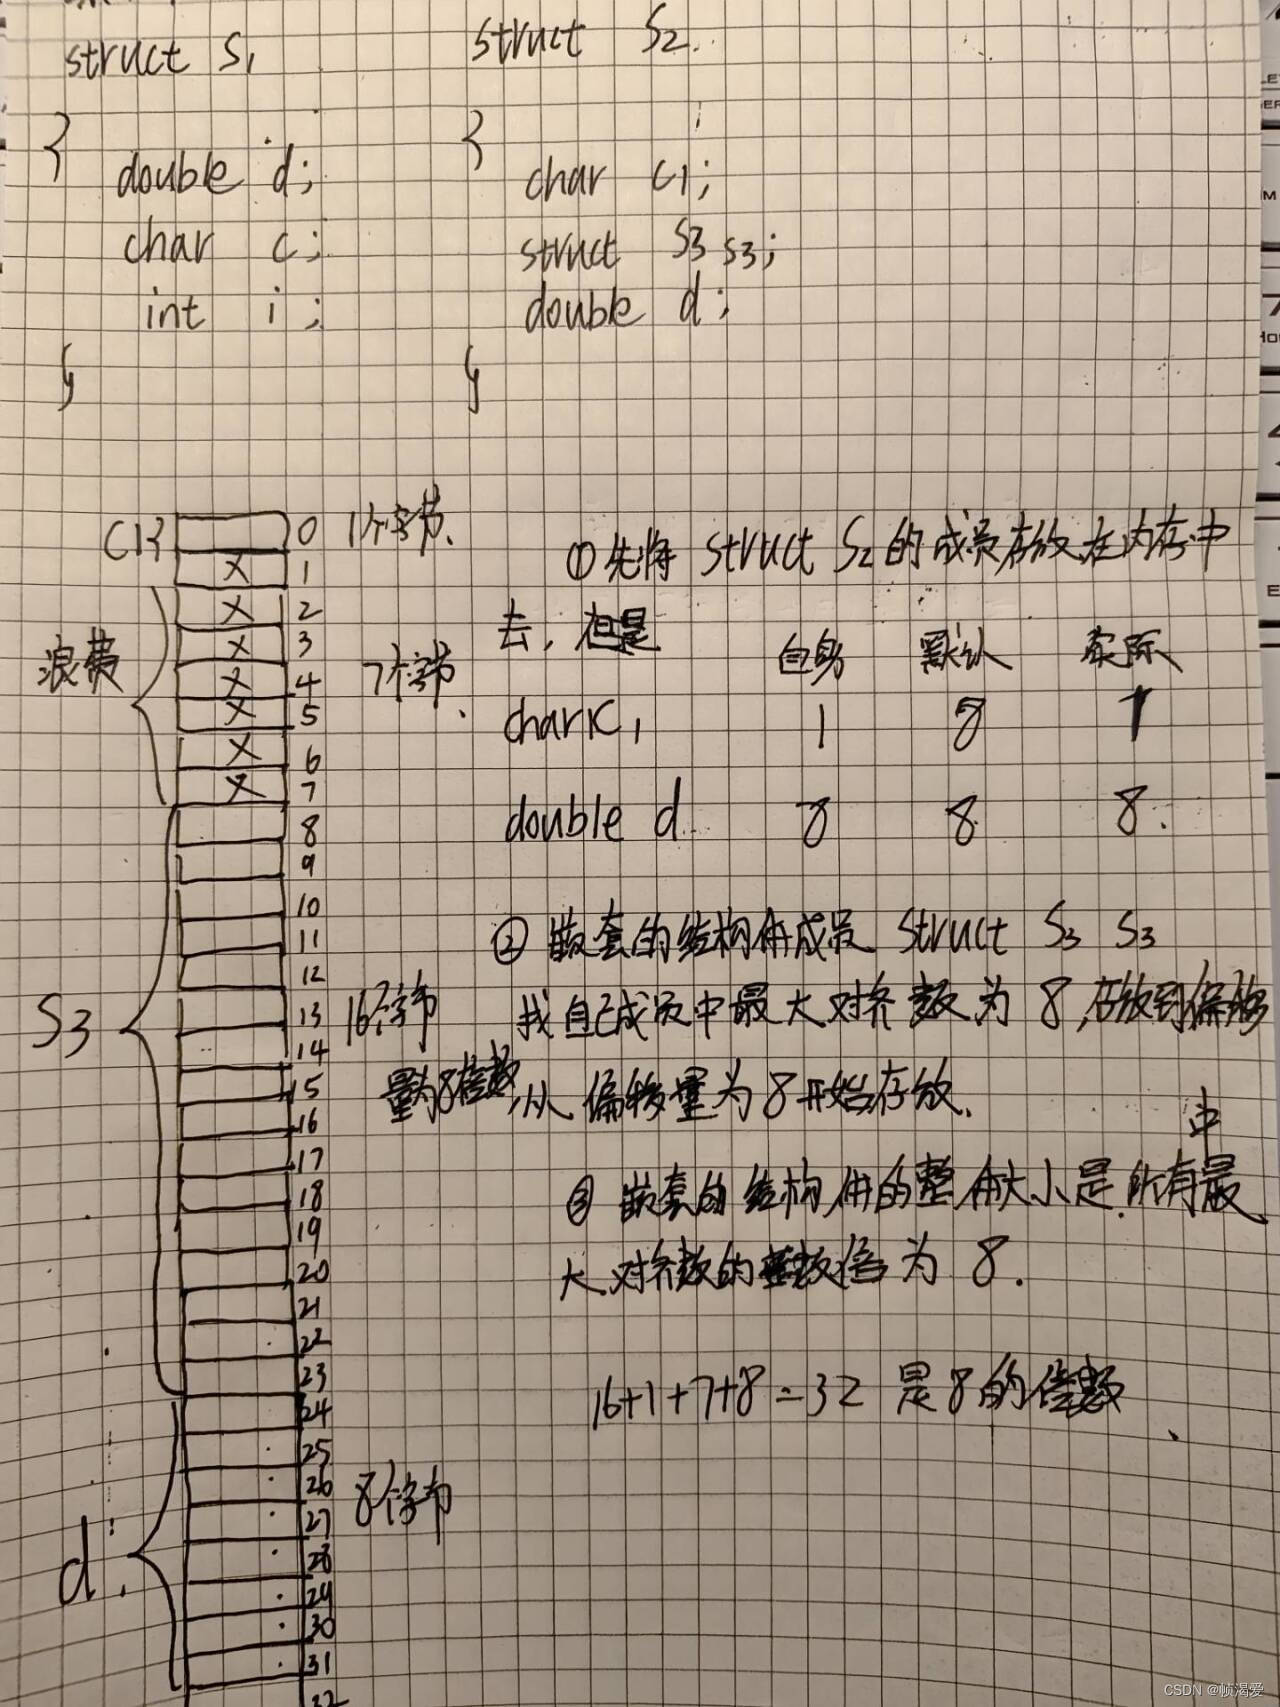 struct S1 struct S2
{ {
double d; char c1;
char c; struct S3 s3;
int i; double d;
} }
C1{ 0 1个字节、
X 1 ①先将 struct S2 的成员存放在内存中
X 2 去，但是
浪费 X 3 自身 默认 实际
X 4 7个字节、
X 5 char c1 1 8 1
X 6
X 7
8 double d 8 8 8.
9
10 ②嵌套的结构体成员 struct S3 S3
11
12
S3 13 16个字节 找自己成员中最大对齐数为8,存放到偏移
14
15 量为8倍数,从偏移量为8开始存放、
16
17 中
18 ③嵌套的结构体的整体大小是所有最
19
20 大对齐数的整数倍为8.
21
22
23 16+1+7+8=32 是8的倍数、
24
25
26 8个字节
27
d. 28
29
30
31
32
LE
ER
M
7
Hou
4
E
CSDN @帧渴爱